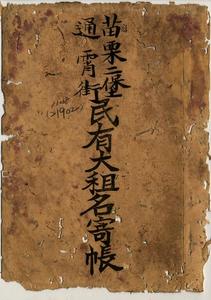 苗栗二堡
通霄街
民有大租名寄帳
(1902)